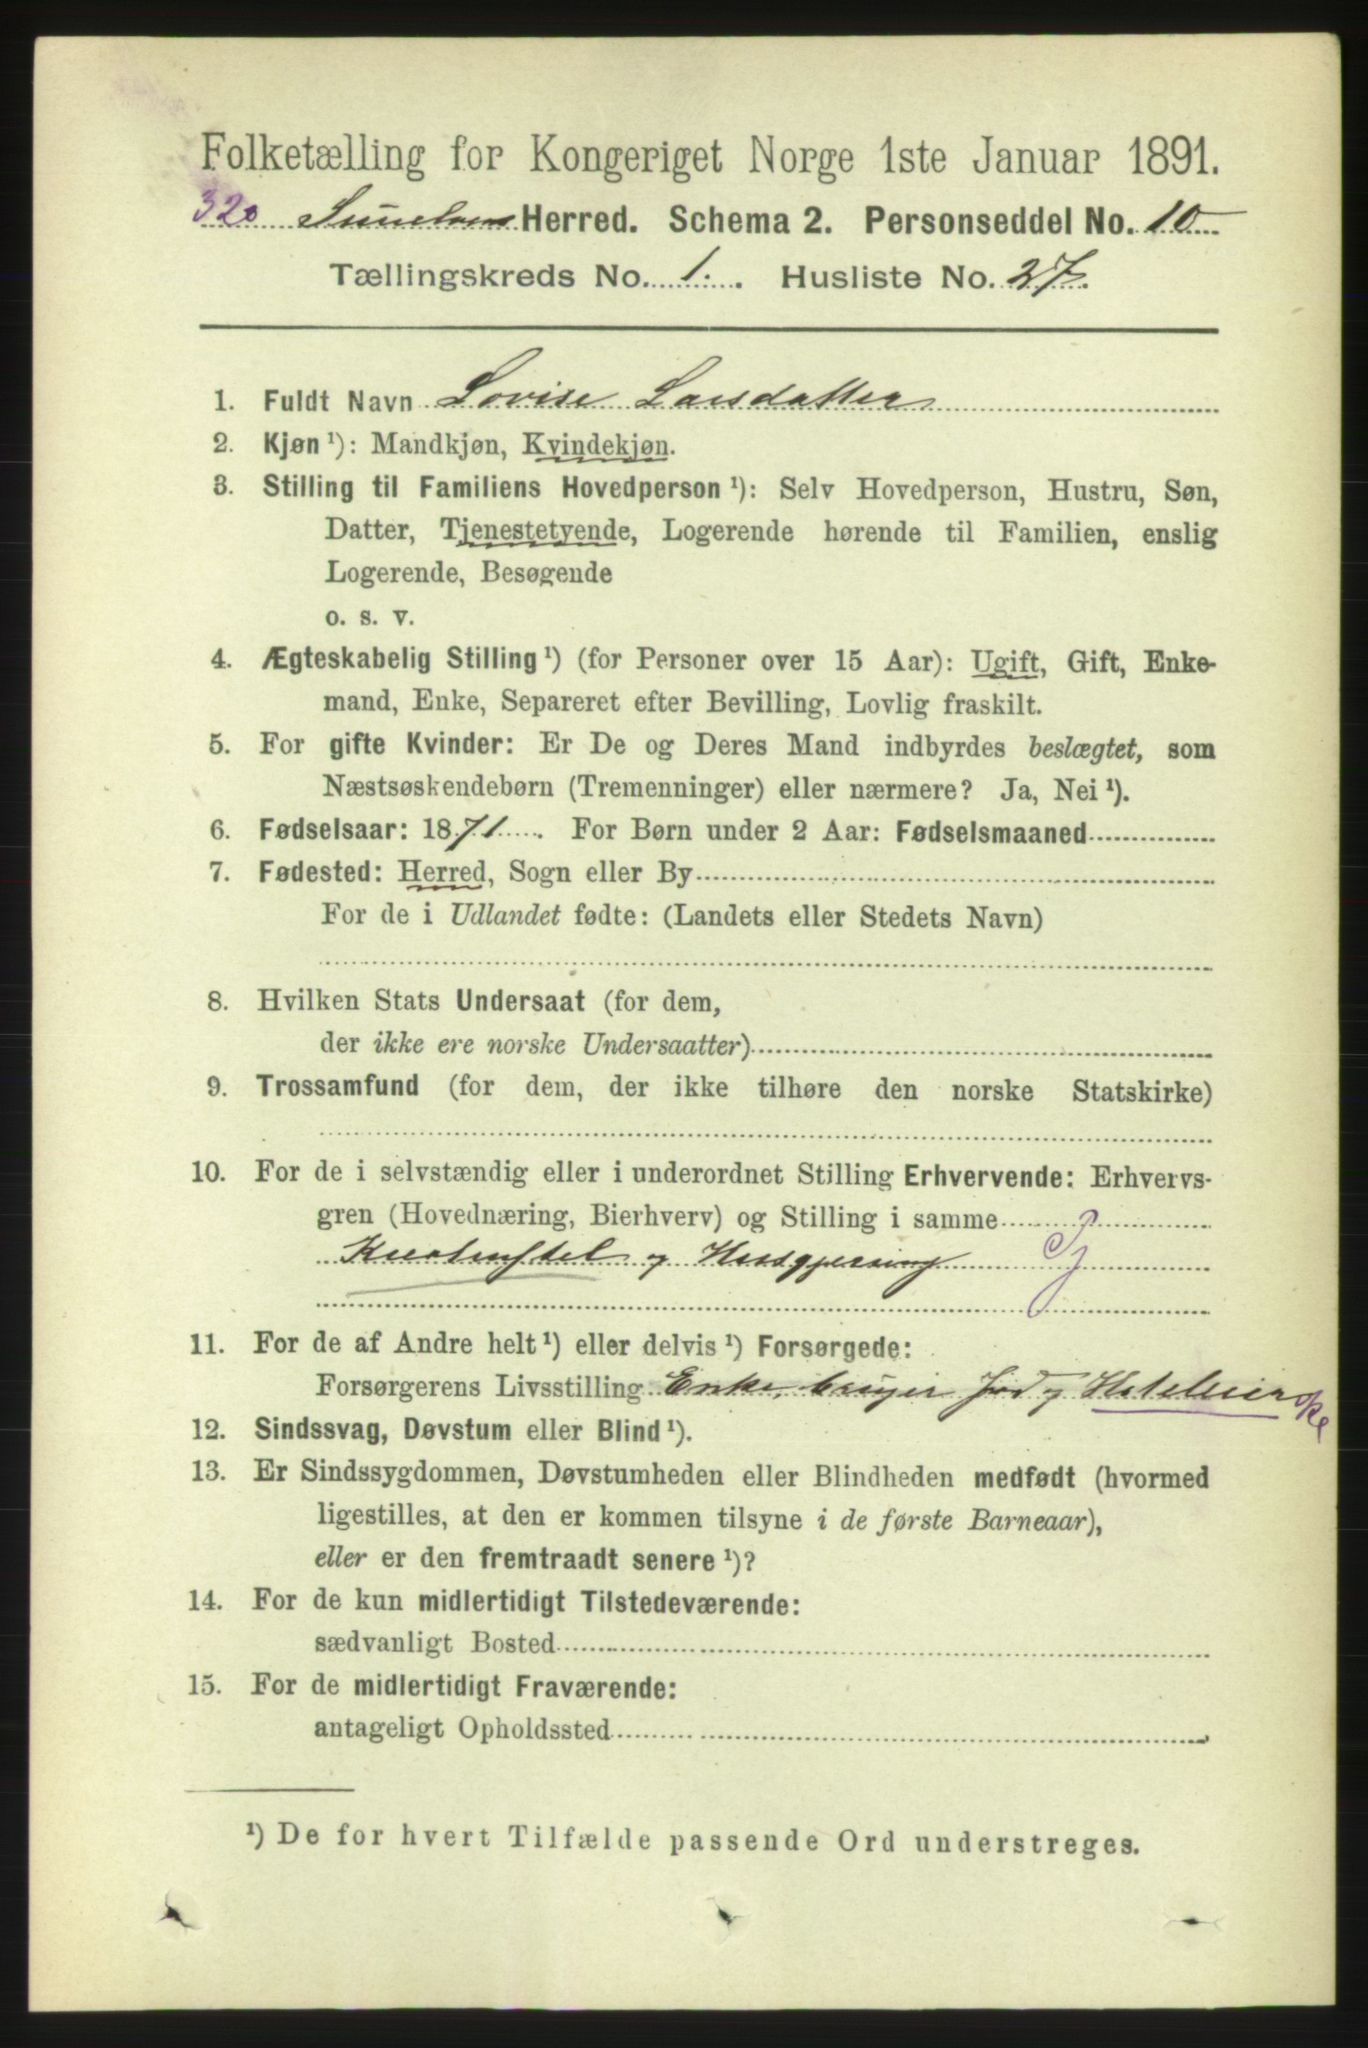 Folketælling for Kongeriget Norge 1ste Januar 1891.
320 Sunelven Herred. Schema 2. Personseddel No. 10
Tællingskreds No. 1. Husliste No. 27.
1. Fuldt Navn Lovise Larsdatter
2. Kjøn¹): Mandkjøn, Kvindekjøn.
3. Stilling til Familiens Hovedperson¹): Selv Hovedperson, Hustru, Søn,
Datter, Tjenestetyende, Logerende hørende til Familien, enslig
Logerende, Besøgende
o. s. v.
4. Ægteskabelig Stilling¹) (for Personer over 15 Aar): Ugift, Gift, Enke-
mand, Enke, Separeret efter Bevilling, Lovlig fraskilt.
5. For gifte Kvinder: Er De og Deres Mand indbyrdes beslægtet, som
Næstsøskendebørn (Tremenninger) eller nærmere? Ja, Nei¹).
6. Fødselsaar: 1871. For Børn under 2 Aar: Fødselsmaaned
7. Fødested: Herred, Sogn eller By
For de i Udlandet fødte: (Landets eller Stedets Navn)
8. Hvilken Stats Undersaat (for dem,
der ikke ere norske Undersaatter)
9. Trossamfund (for dem, der ikke tilhøre den norske Statskirke)
10. For de i selvstændig eller i underordnet Stilling Erhvervende: Erhvervs-
gren (Hovednæring, Bierhverv) og Stilling i samme
Kreaturstel og Husgjerning Pj
11. For de af Andre helt¹) eller delvis¹) Forsørgede:
Forsørgerens Livsstilling Enke, bruger Jord og
12. Sindssvag, Døvstum eller Blind¹).
13. Er Sindssygdommen, Døvstumheden eller Blindheden medfødt (hvormed
ligestilles, at den er kommen tilsyne i de første Barneaar),
eller er den fremtraadt senere¹)?
14. For de kun midlertidigt Tilstedeværende:
sædvanligt Bosted
15. For de midlertidigt Fraværende:
antageligt Opholdssted
¹) De for hvert Tilfælde passende Ord understreges.